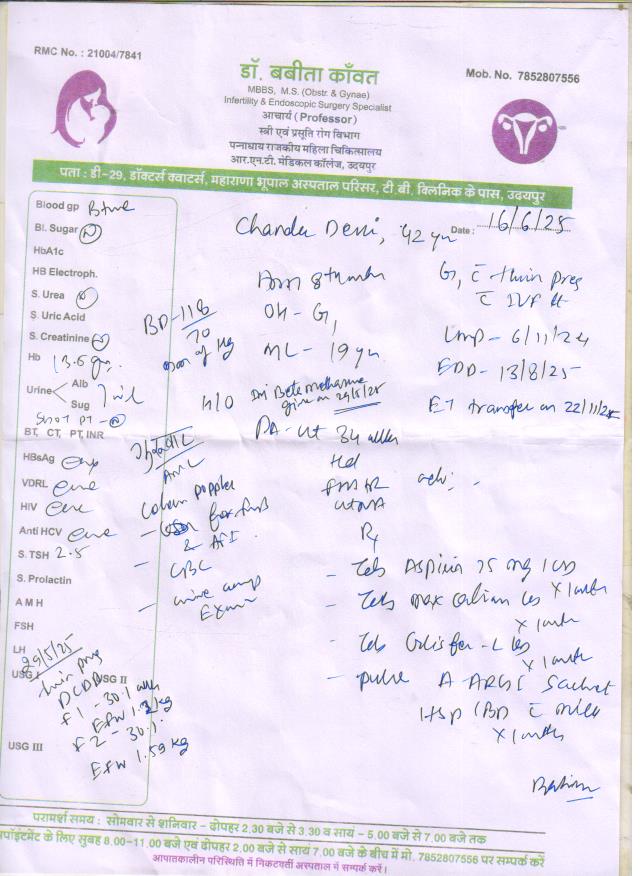 RMC No. : 21004/7841
डॉ. बबीता काँवत
MBBS, M.S. (Obstr. & Gynae)
Infertility & Endoscopic Surgery Specialist
आचार्य (Professor)
स्त्री एवं प्रसूति रोग विभाग
पन्नाधाय राजकीय महिला चिकित्सालय
आर.एन.टी. मेडिकल कॉलेज, उदयपुर
Mob. No. 7852807556
पता : डी-29, डॉक्टर्स क्वाटर्स, महाराणा भूपाल अस्पताल परिसर, टी.बी. क्लिनिक के पास, उदयपुर
Blood gp B+ive
Bl. Sugar N
HbA1c
HB Electroph.
S. Urea N
S. Uric Acid
S. Creatinine N
Hb 13.6 gm.
Urine Alb
Sug nil
SGOT PT - N
BT, CT, PT, INR
HBsAg -ve
VDRL -ve
HIV -ve
Anti HCV -ve
S. TSH 2.5
S. Prolactin
A M H
FSH
LH
29/5/25
USG I
twin preg
DCDA
USG II
F1 - 30.1 wks
EFW 1.3 kg
F2 - 30.1
EFW 1.59 kg
USG III
Date : 16/6/25
42 yr
BP - 118
70
mm of Hg
OH - G1
ML - 19 yr
H/O Inj Betamethasone
given on 29/5/25
PA - ut 34 wks
G1 c̄ twin preg
c̄ IVF
LMP - 6/11/24
EDD - 13/8/25
ET transfer on 22/11/25
adv: -
Colour doppler
& AFI
- CBC
- urine comp
Exam
Rx
- Tab Aspirin 75 mg 1 OD
x 1 month
- Tab
x 1 month
- Tab Orisfer-L
x 1 month
- A-ARGI Sachet
1 tsp BD c̄ milk
x 1 month
परामर्श समय : सोमवार से शनिवार - दोपहर 2.30 बजे से 3.30 व सायं - 5.00 बजे से 7.00 बजे तक
अपॉइंटमेंट के लिए सुबह 8.00-11.00 बजे एवं दोपहर 2.00 बजे से सायं 7.00 बजे के बीच में मो. 7852807556 पर सम्पर्क करें
आपातकालीन परिस्थिति में निकटवर्ती अस्पताल में सम्पर्क करें।